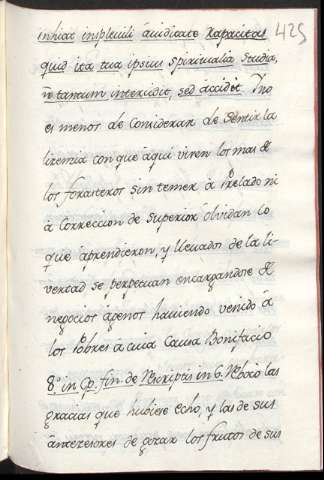 425
inhiat inexplevili àuidiate Rapacitas
quid ita tua ipsius Spiritualia Studia,
ñ tantum intercidit, sed àccidit. Y no
es menor de considerar de sentir la
licenzia con que àqui viven los mas de
los forasteros sin temer à Prelado ni
à correccion de superior olvidan lo
que àprendieron, y lleuados de la li-
vertad se perpetuan encargandose de
negocios àgenos haviendo venido à
los Pobres à cuia Causa Bonifacio
8.º in Cp. fin. de Rescriptis in 6. Reboco las
gracias que hubiese echo, y las de sus
ànteresores de gozar los frutos de sus